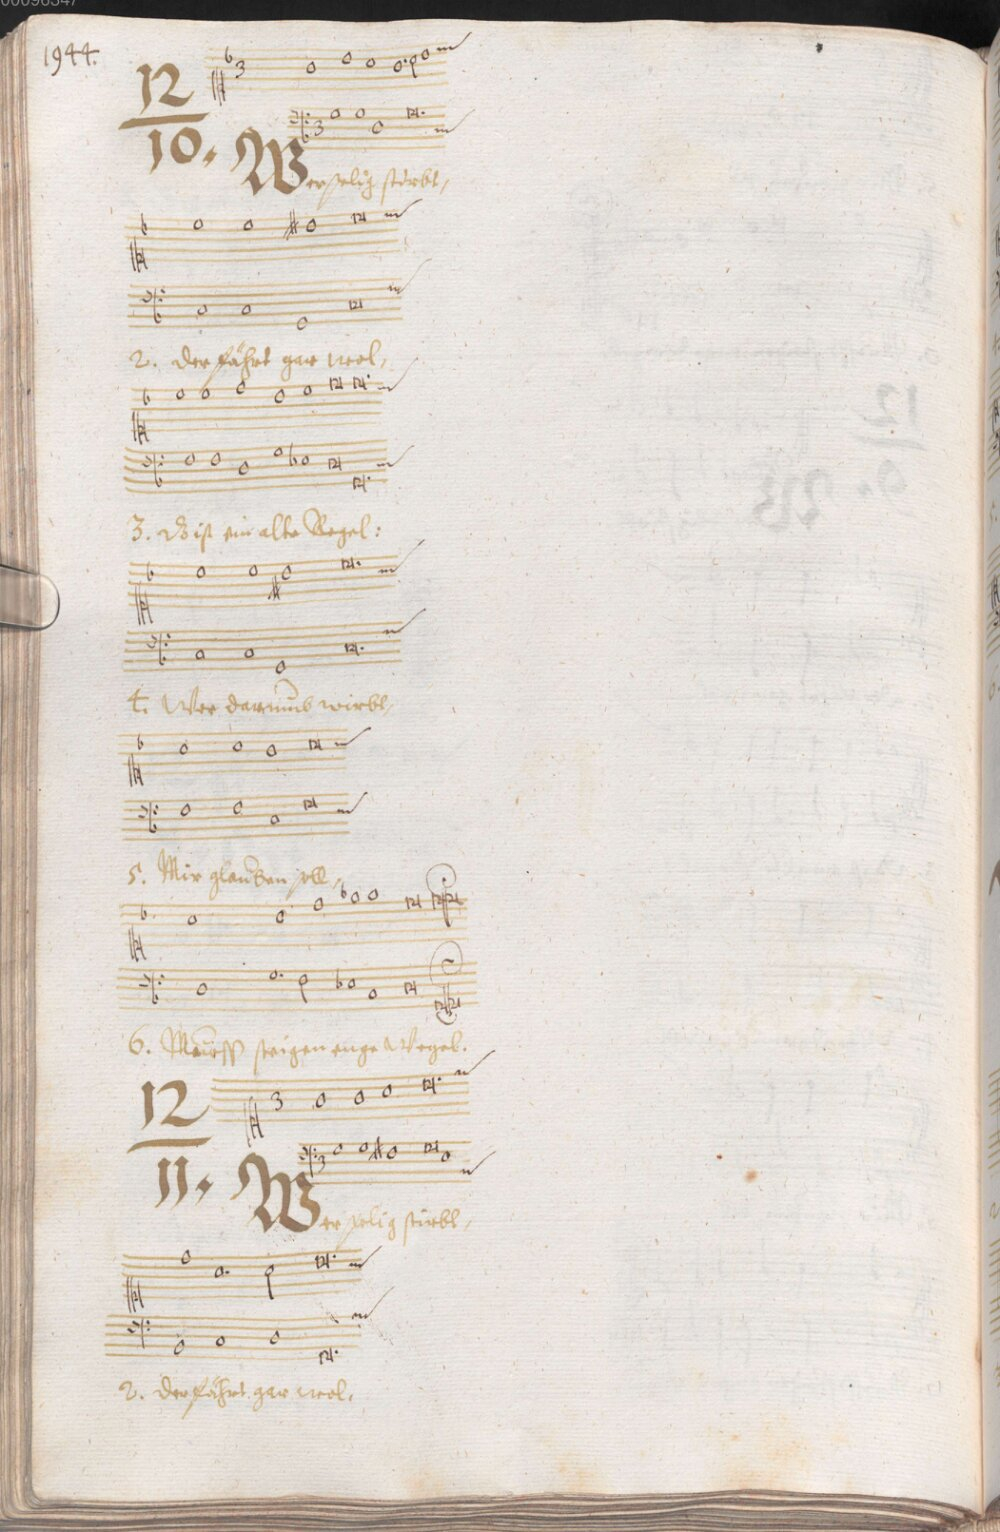 00096347
1944.
12
10.
Wer selig stirbt,
2. der fährt gar wol,
3. ist ein alte Regel:
4. Wer darumb wirbt,
5. Mir glauben soll,
6. steigen enge Wegel.
12
11.
Wer selig stirbt,
2. der fährt gar wol,